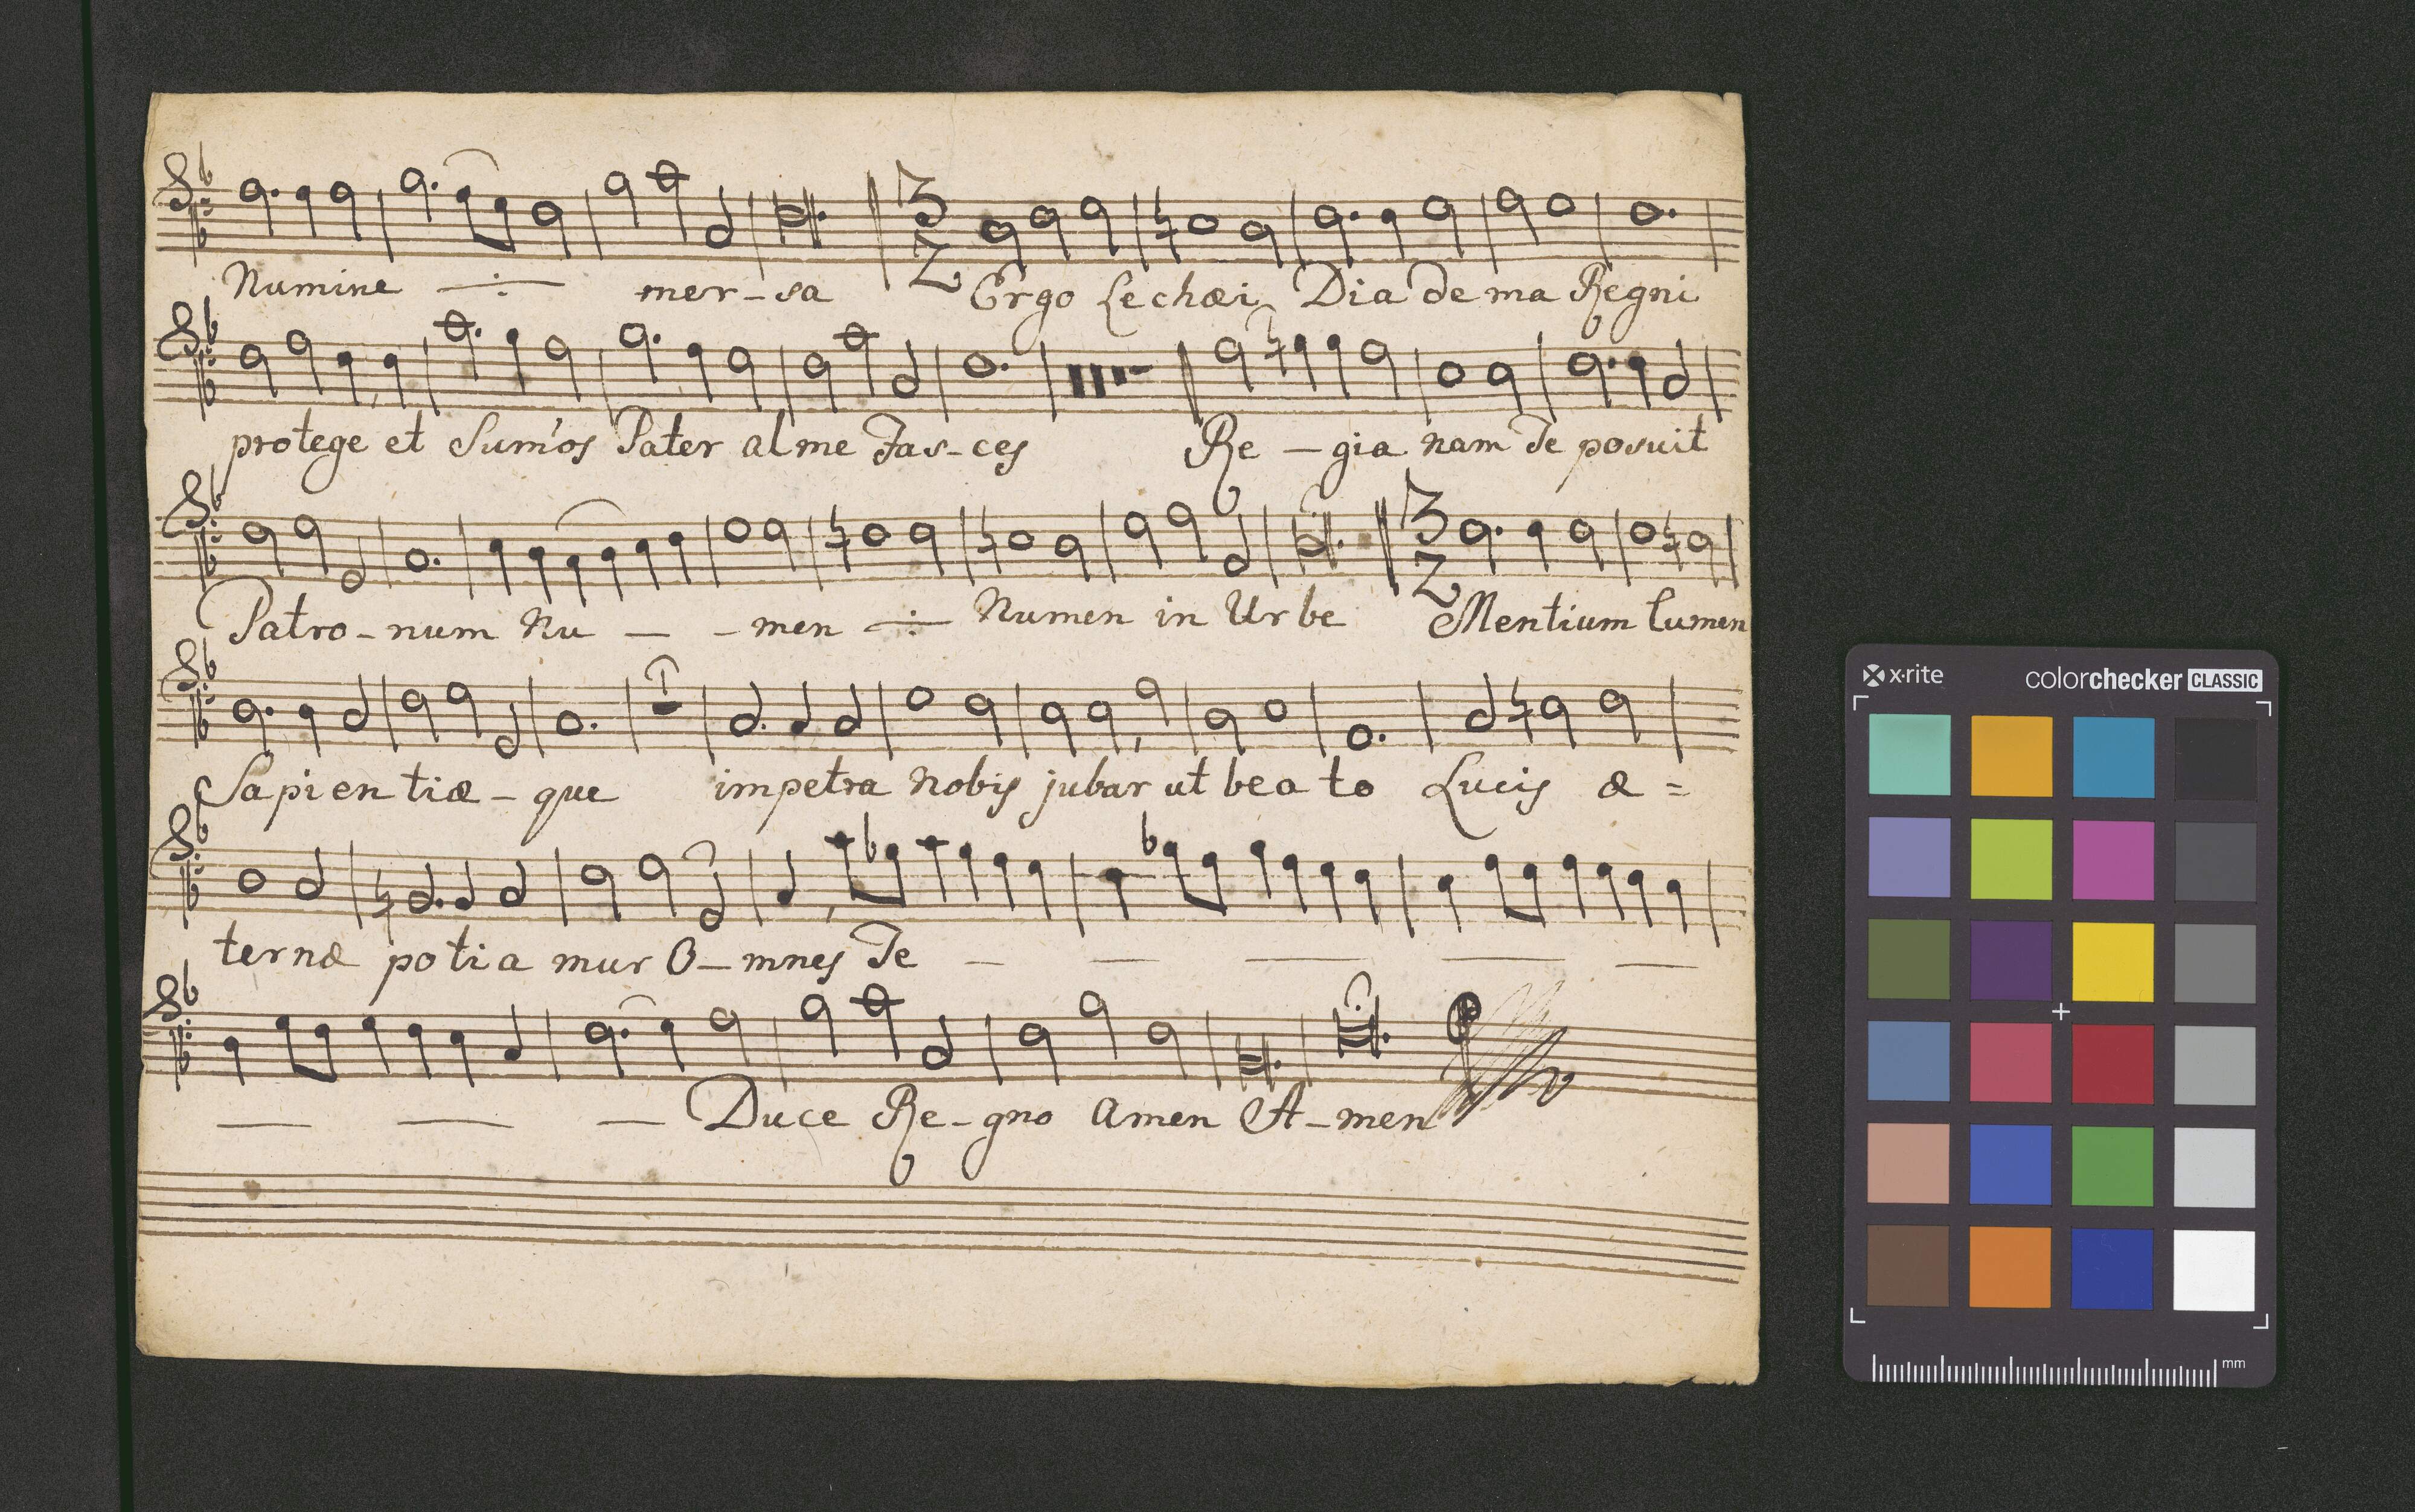 Numine ∸ mer-sa 3 2 Ergo Lechæi Diadema Regni
protege et Sum̃os Pater alme Fas-ces Re-gia nam Te posuit
Patro-num Nu - -men ∸ Numen in Urbe 3 2 Mentium lumen
Sapientiæ-que impetra nobis jubar ut beato Lucis æ=
ternæ potiamur O-mnes Te - - - - -
- - - Duce Re-gno Amen A-men
x·rite colorchecker CLASSIC
mm